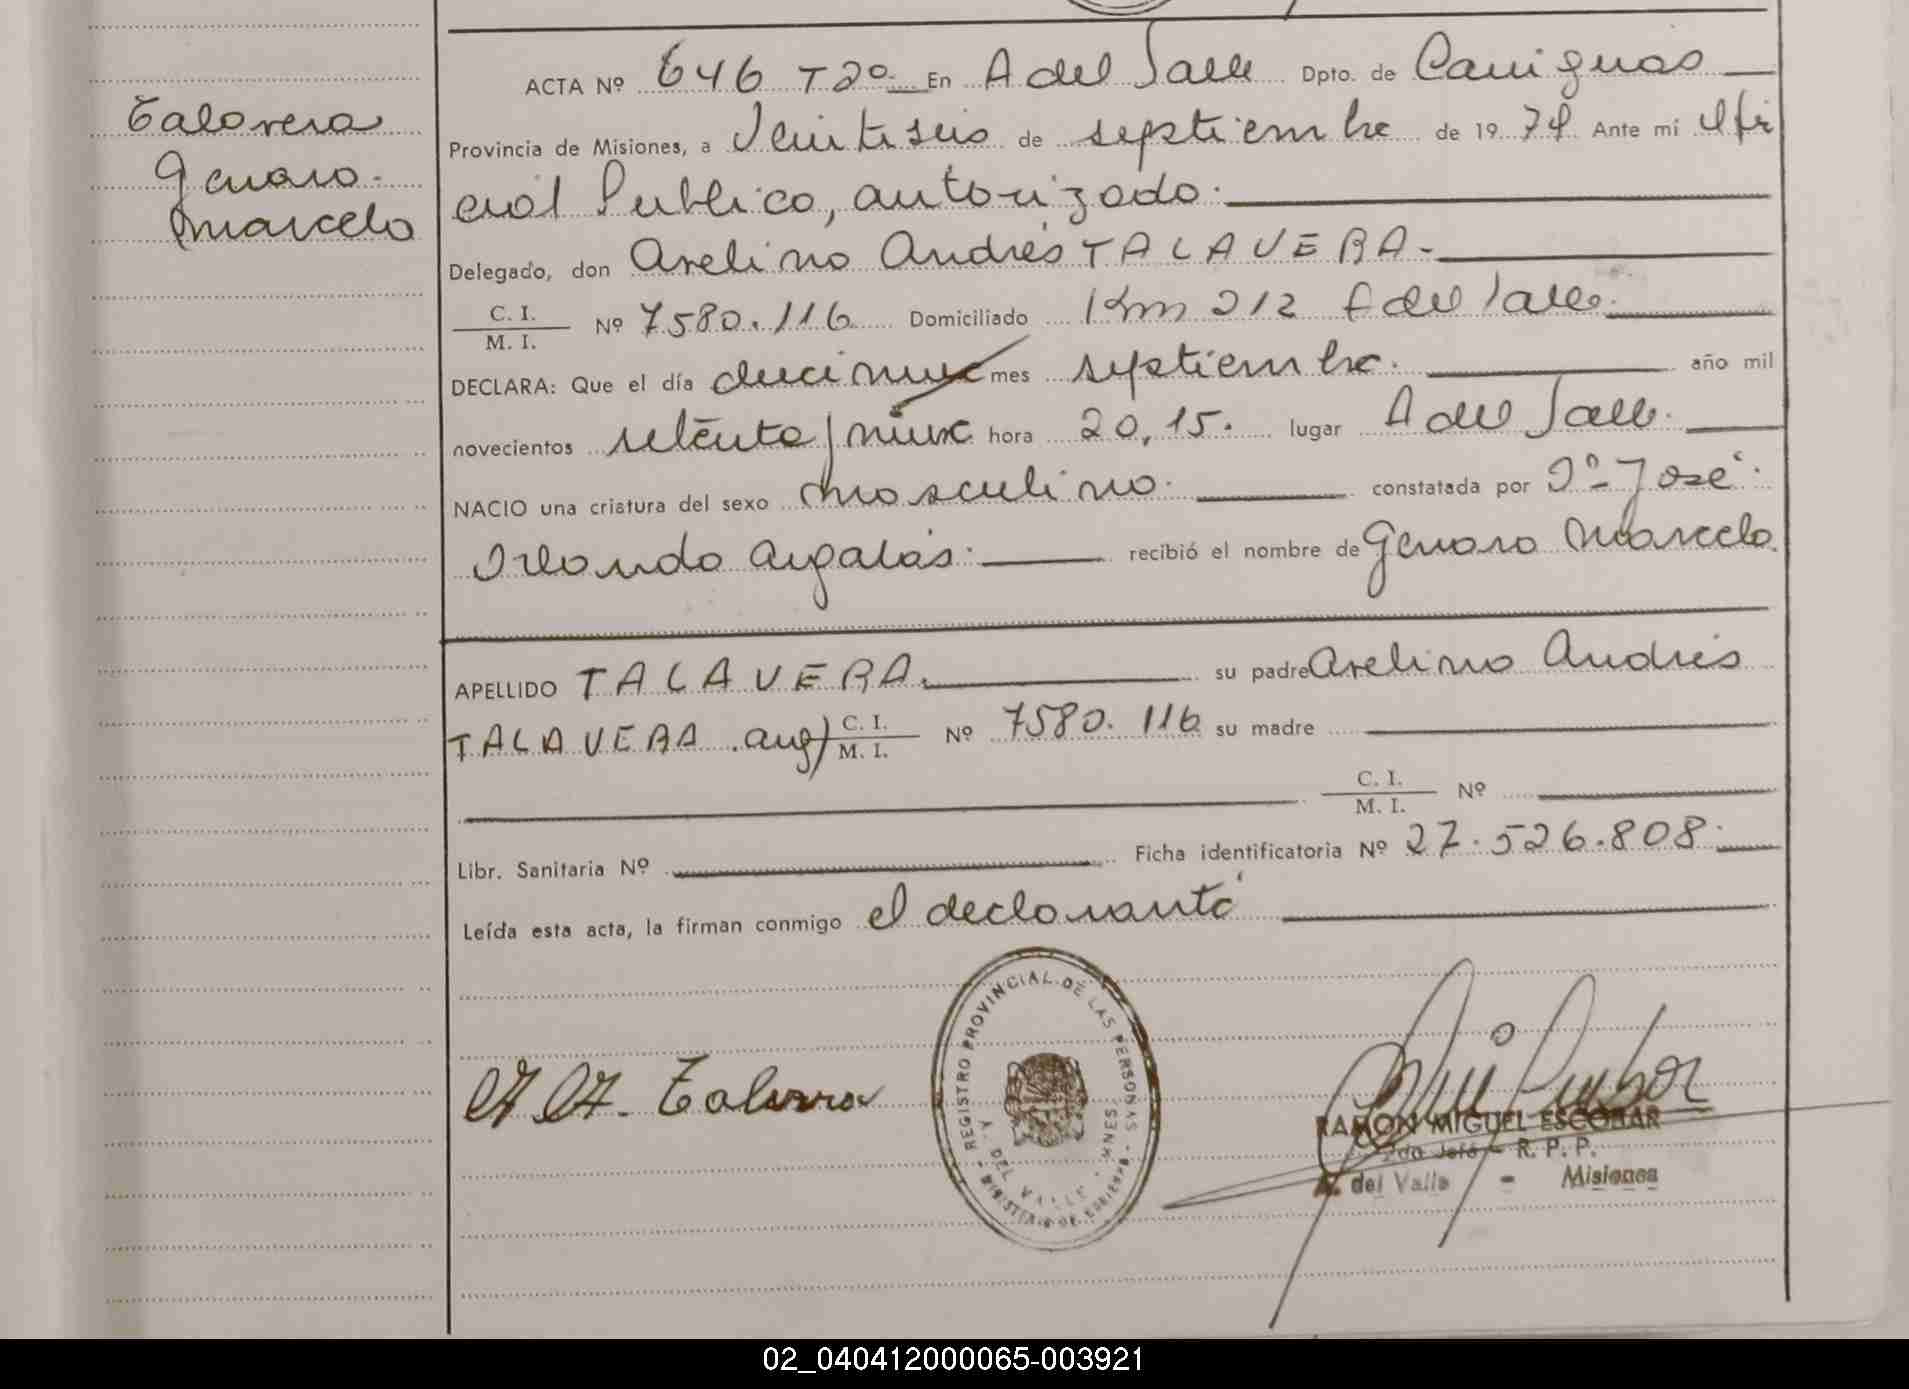 Talavera
Genaro
Marcelo
ACTA Nº 646 T2º En A del Valle Dpto. de Cainguás
Provincia de Misiones, a Veintiseis de septiembre de 1979 Ante mi Ofi
cial Publico, autorizado.
Delegado, don Avelino Andrés TALAVERA.-
C. I.
M. I. Nº 7580.116 Domiciliado Km 212 A del Valle.
DECLARA: Que el día diecinueve mes septiembre. año mil
novecientos setenta/nueve hora 20,15. lugar A del Valle.
NACIO una criatura del sexo masculino. constatada por Dº- José
Orlando recibió el nombre de Genaro Marcelo.
APELLIDO TALAVERA. su padre Avelino Andrés
TALAVERA arg) C. I.
M. I. Nº 7580.116 su madre
C. I.
M. I. Nº
Libr. Sanitaria Nº Ficha identificatoria Nº 27.526.808.
Leída esta acta, la firman conmigo el declarante
REGISTRO PROVINCIAL DE LAS PERSONAS
A. DEL VALLE - MNES.
MINISTERIO DE GOBIERNO
A. A. Talavera
RAMON MIGUEL ESCOBAR
2do Jefe - R. P. P.
A. del Valle - Misiones
02_040412000065-003921